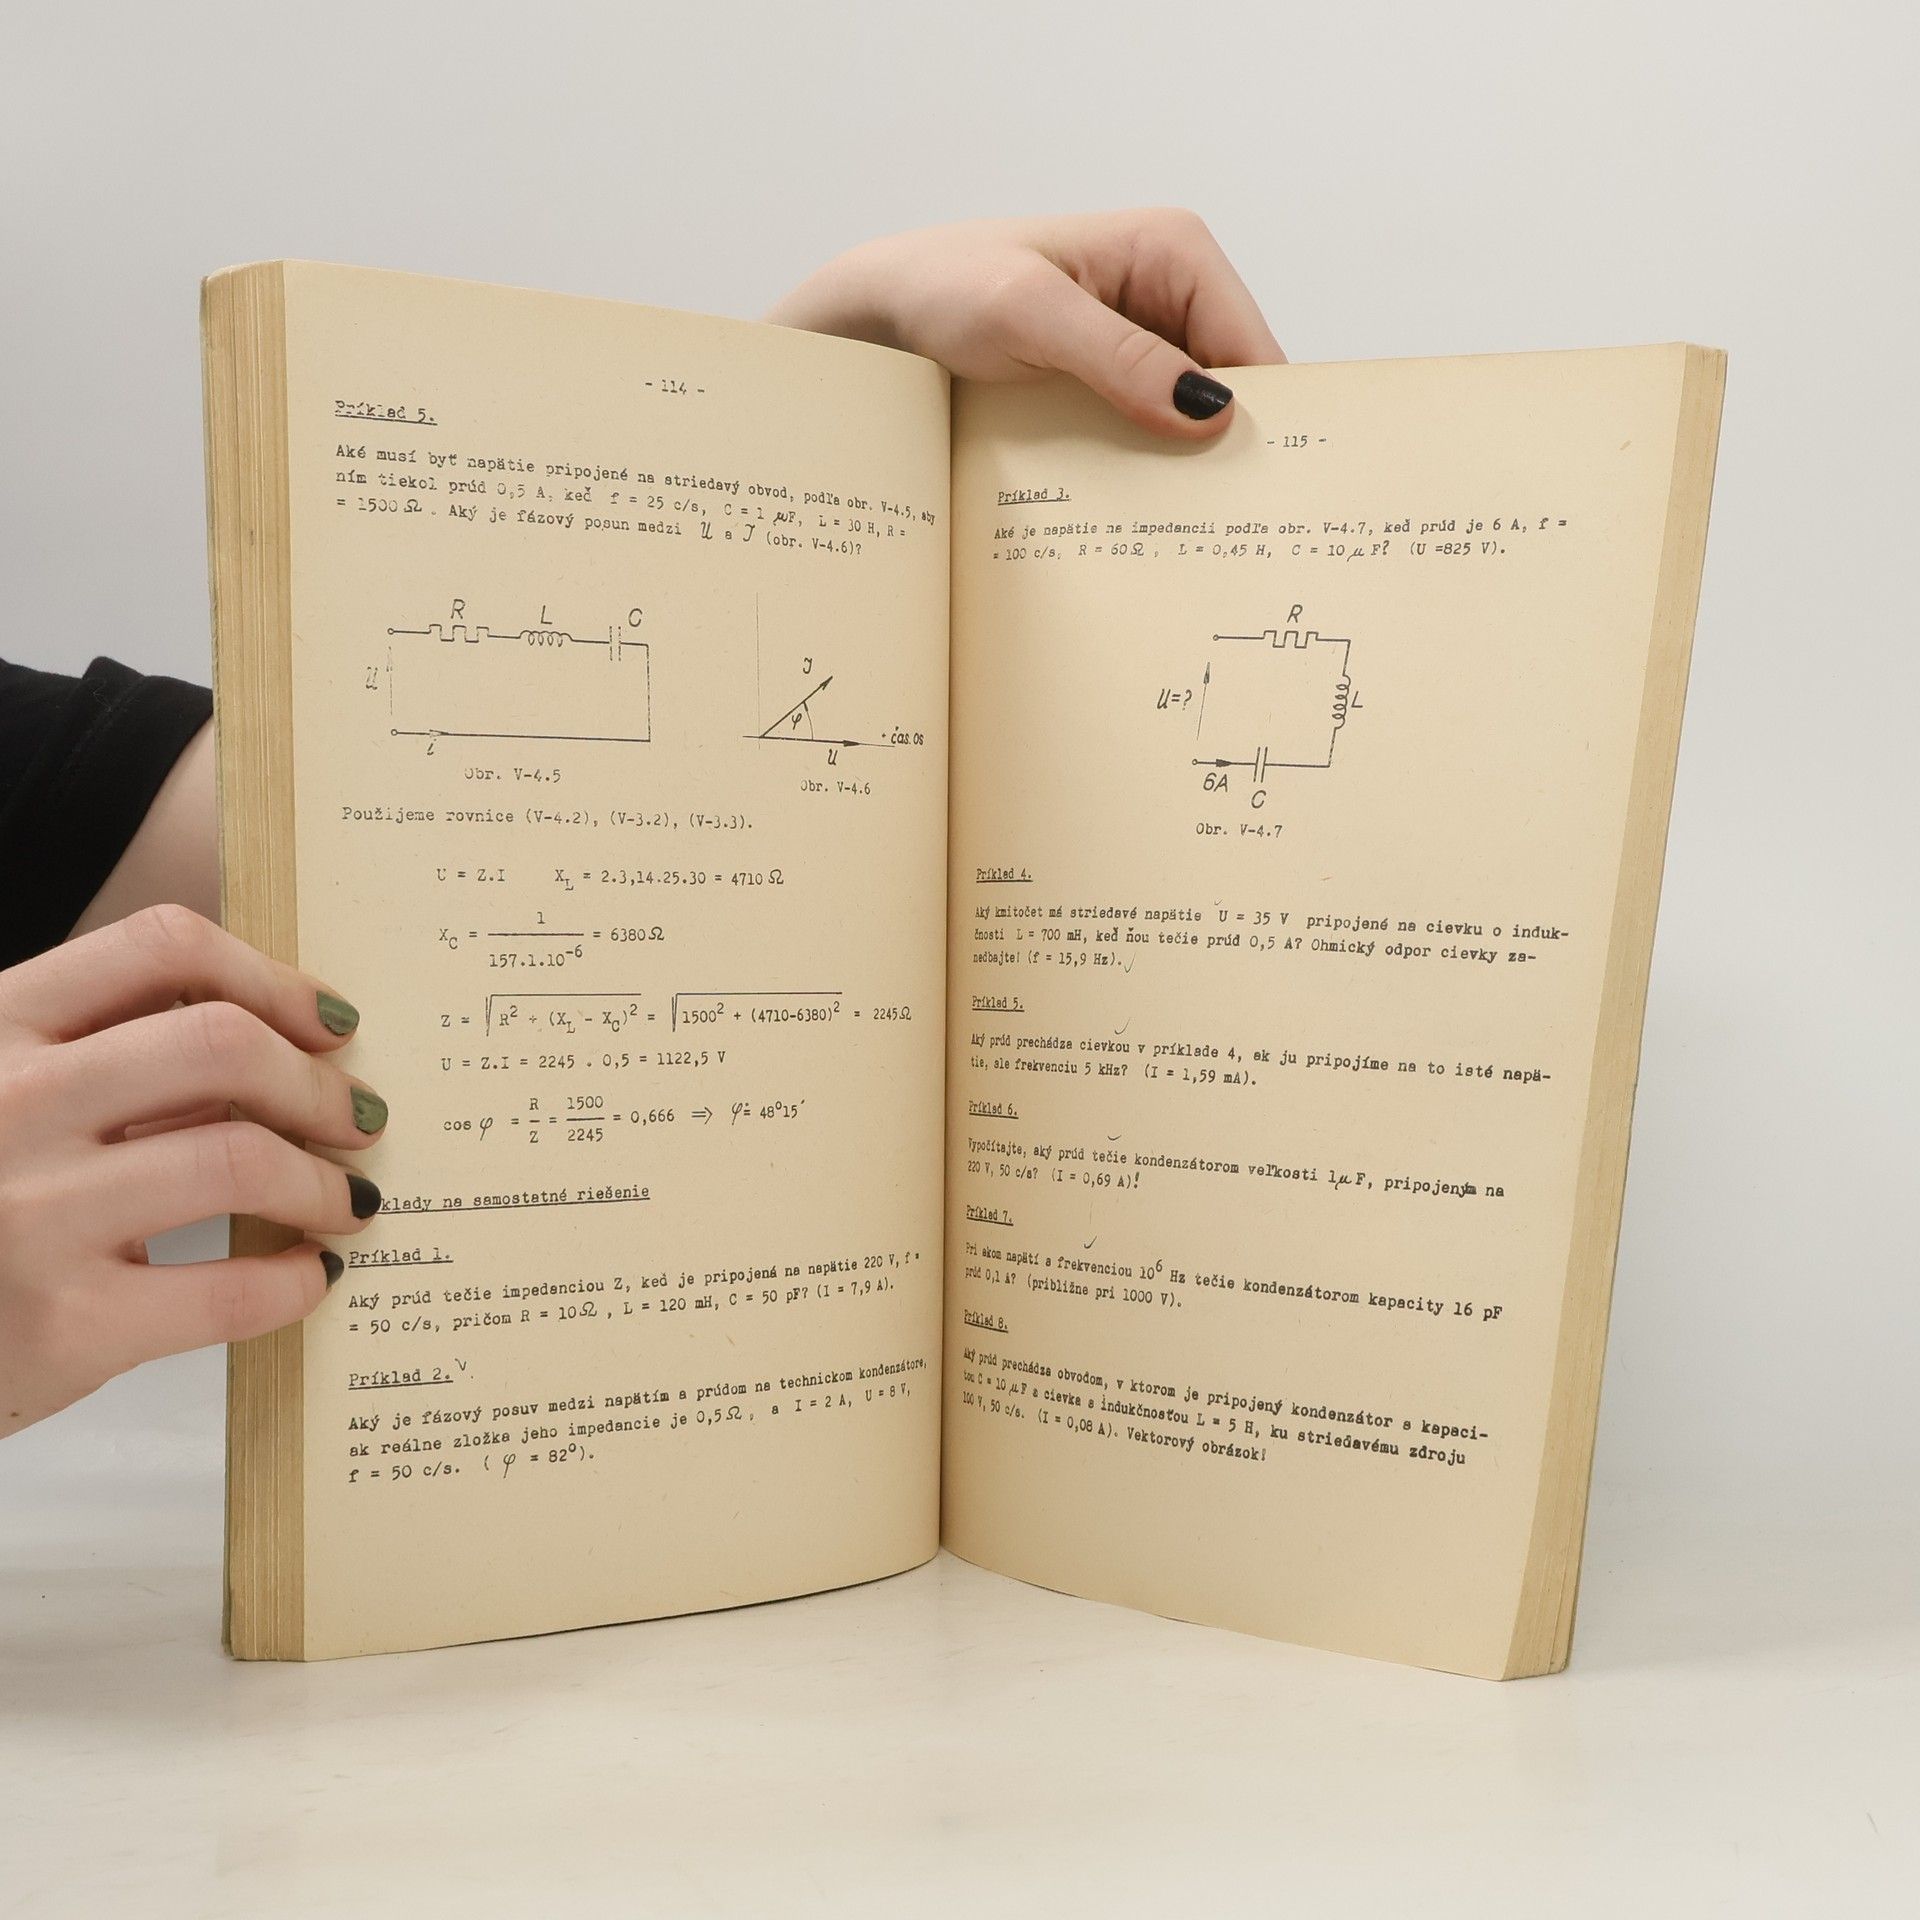 - 114 -
Príklad 5.
Aké musí byť napätie pripojené na striedavý obvod, podľa obr. V-4.5, aby
ním tiekol prúd 0,5 A, keď f = 25 c/s, C = 1 μF, L = 30 H, R =
= 1500 Ω . Aký je fázový posun medzi U a J (obr. V-4.6)?
R L C
U
i
Obr. V-4.5
J
φ
U
čas. os
Obr. V-4.6
Použijeme rovnice (V-4.2), (V-3.2), (V-3.3).
U = Z.I X_L = 2.3,14.25.30 = 4710 Ω
X_C = 1 / 157.1.10^-6 = 6380 Ω
Z = √R² + (X_L - X_C)² = √1500² + (4710-6380)² = 2245 Ω
U = Z.I = 2245 . 0,5 = 1122,5 V
cos φ = R / Z = 1500 / 2245 = 0,666 ⇒ φ ≐ 48°15´
klady na samostatné riešenie
Príklad 1.
Aký prúd tečie impedanciou Z, keď je pripojená na napätie 220 V, f =
= 50 c/s, pričom R = 10 Ω , L = 120 mH, C = 50 pF? (I = 7,9 A).
Príklad 2.
Aký je fázový posuv medzi napätím a prúdom na technickom kondenzátore,
ak reálne zložka jeho impedancie je 0,5 Ω , a I = 2 A, U = 8 V,
f = 50 c/s. ( φ = 82°).
- 115 -
Príklad 3.
Aké je napätie na impedancii podľa obr. V-4.7, keď prúd je 6 A, f =
= 100 c/s, R = 60 Ω , L = 0,45 H, C = 10 μ F? (U =825 V).
R
U=?
L
6A
C
Obr. V-4.7
Príklad 4.
Aký kmitočet má striedavé napätie U = 35 V pripojené na cievku o induk-
čnosti L = 700 mH, keď ňou tečie prúd 0,5 A? Ohmický odpor cievky za-
nedbajte! (f = 15,9 Hz).
Príklad 5.
Aký prúd prechádza cievkou v príklade 4, ak ju pripojíme na to isté napä-
tie, ale frekvenciu 5 kHz? (I = 1,59 mA).
Príklad 6.
Vypočítajte, aký prúd tečie kondenzátorom veľkosti 1μ F, pripojeným na
220 V, 50 c/s? (I = 0,69 A)!
Príklad 7.
Pri akom napätí s frekvenciou 10⁶ Hz tečie kondenzátorom kapacity 16 pF
prúd 0,1 A? (približne pri 1000 V).
Príklad 8.
Aký prúd prechádza obvodom, v ktorom je pripojený kondenzátor s kapaci-
tou C = 10 μF a cievka s indukčnosťou L = 5 H, ku striedavému zdroju
100 V, 50 c/s. (I = 0,08 A). Vektorový obrázok!